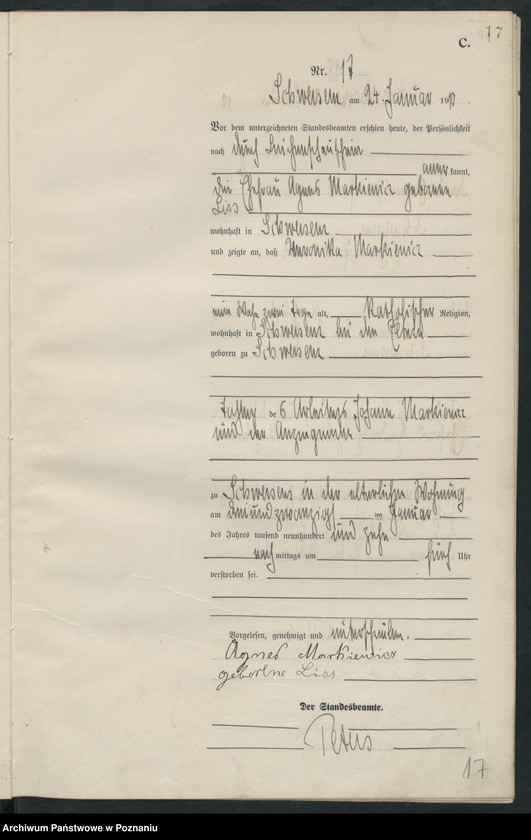 17
C.
Nr. 17
Schwersenz am 24. Januar 1910
Vor dem unterzeichneten Standesbeamten erschien heute, der Persönlichkeit
nach durch Leichenschauschein
anerkannt,
die Ehefrau Agnes Markiewicz geborene
Liss
wohnhaft in Schwersenz
und zeigte an, daß Veronika Markiewicz
eine Woche zwei Tage alt, Katholischer Religion,
wohnhaft in Schwersenz bei den Eltern
geboren zu Schwersenz
Tochter des Arbeiters Johann Markiewicz
und der Anzeigenden
zu Schwersenz in der elterlichen Wohnung
am dreiundzwanzigsten Januar
des Jahres tausend neunhundert und zehn
nachmittags um fünf Uhr
verstorben sei.
Vorgelesen, genehmigt und unterschrieben.
Agnes Markiewicz
geborene Liss
Der Standesbeamte.
Peters
17
Archiwum Państwowe w Poznaniu